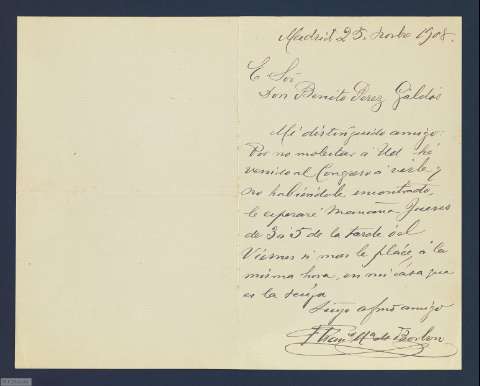 Madrid 25. Novbe 1908.
E. Sor
Don Benito Perez Galdós
Mi distinguido amigo:
Por no molestar à Ud hé
venido al Congreso à verle y
no habiéndole encontrado,
le esperaré mañana Jueves
de 3 à 5 de la tarde ó el
Viernes si mas le place, à la
misma hora, en mi casa que
es la suya
Suyo afmo amigo
Franco Ma de Borbon